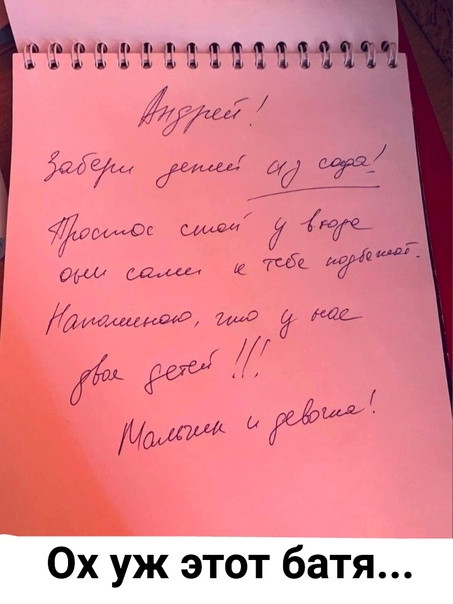 Андрей!
Забери детей из сада!
Просто стой у входа
они сами к тебе подбегат.
Напоминаю, что у нас
двое детей !!!
Мальчик и девочка!
Ох уж этот батя...